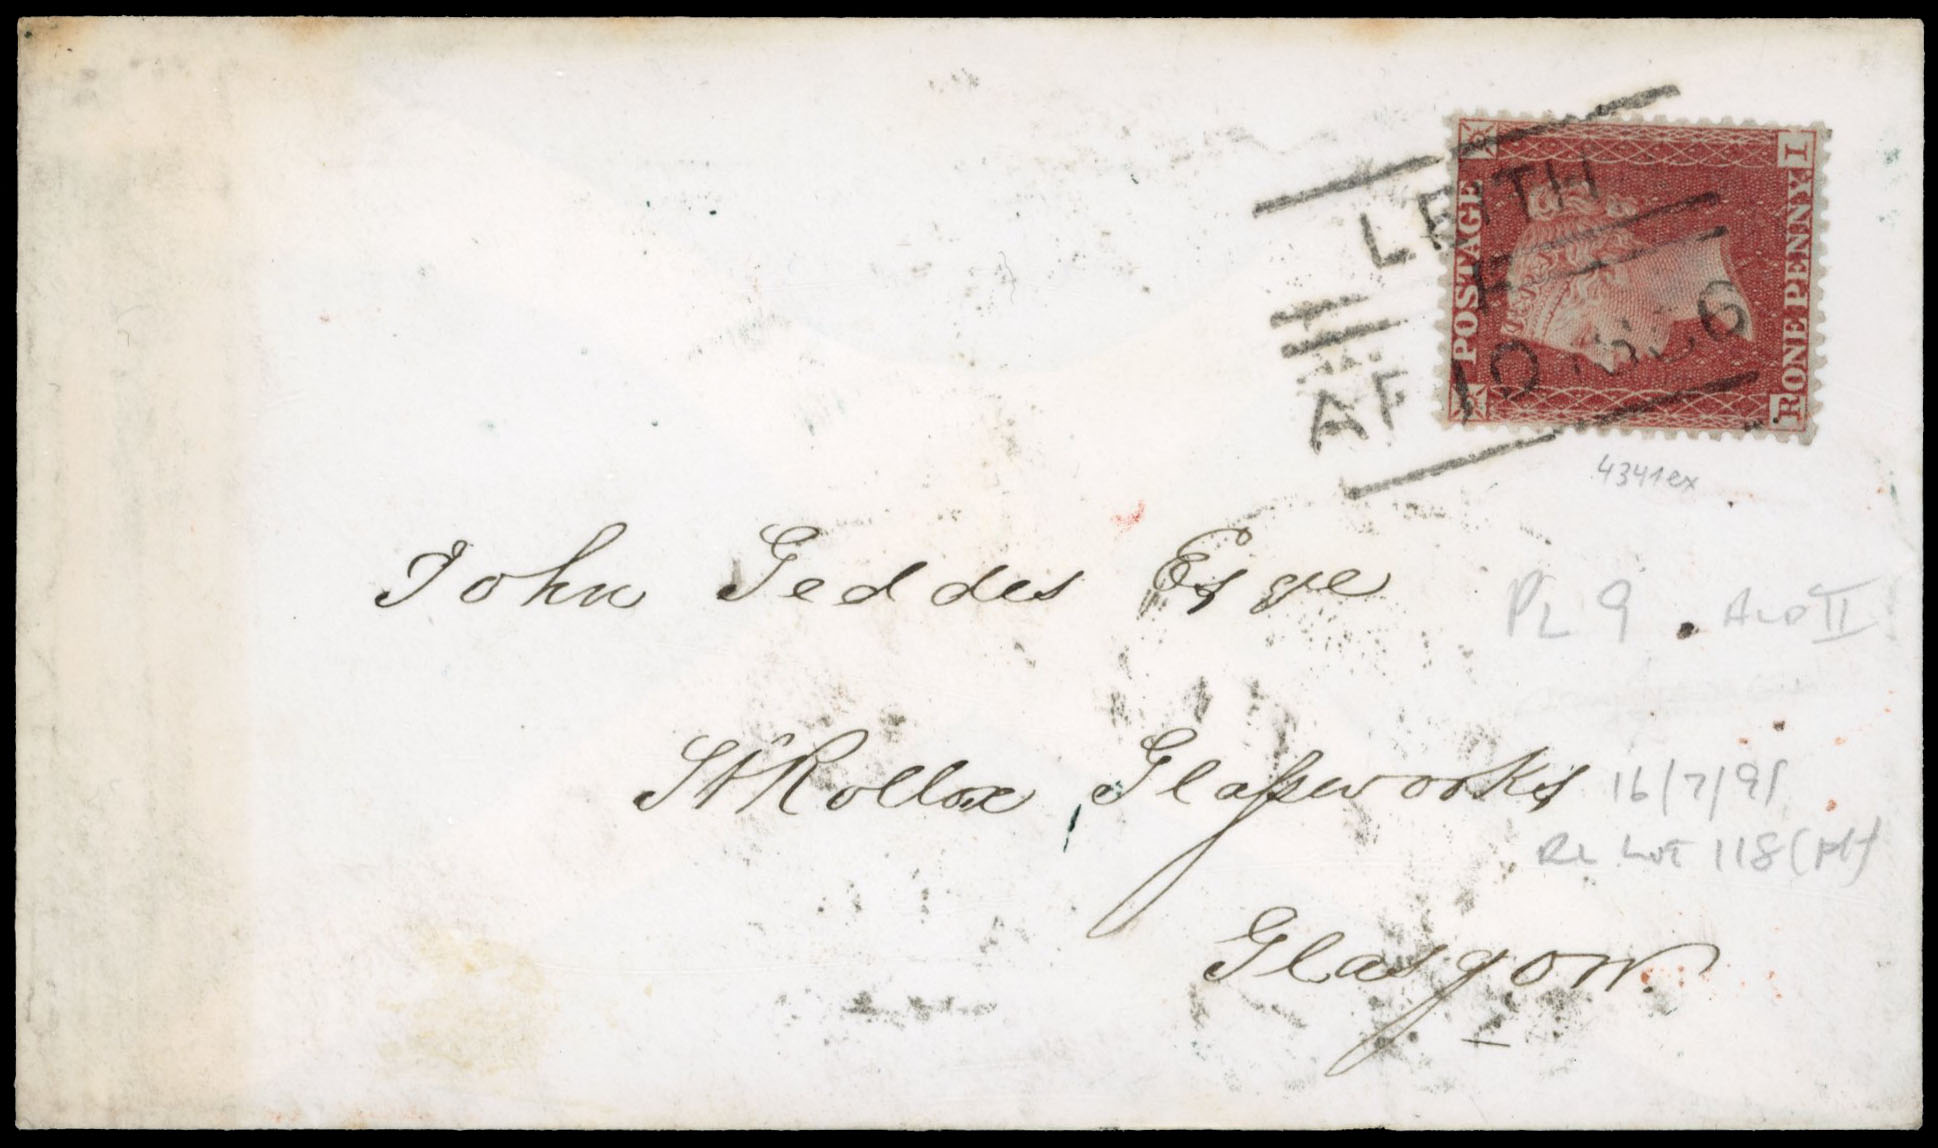 POSTAGE
ONE PENNY.
R
I
LEITH
F
AP 10 1856
4341ex
John Geddes Esqre
PL 9 . ALP II
St Rollox Glassworks
16/7/91
RL LOT 118 (Pt)
Glasgow